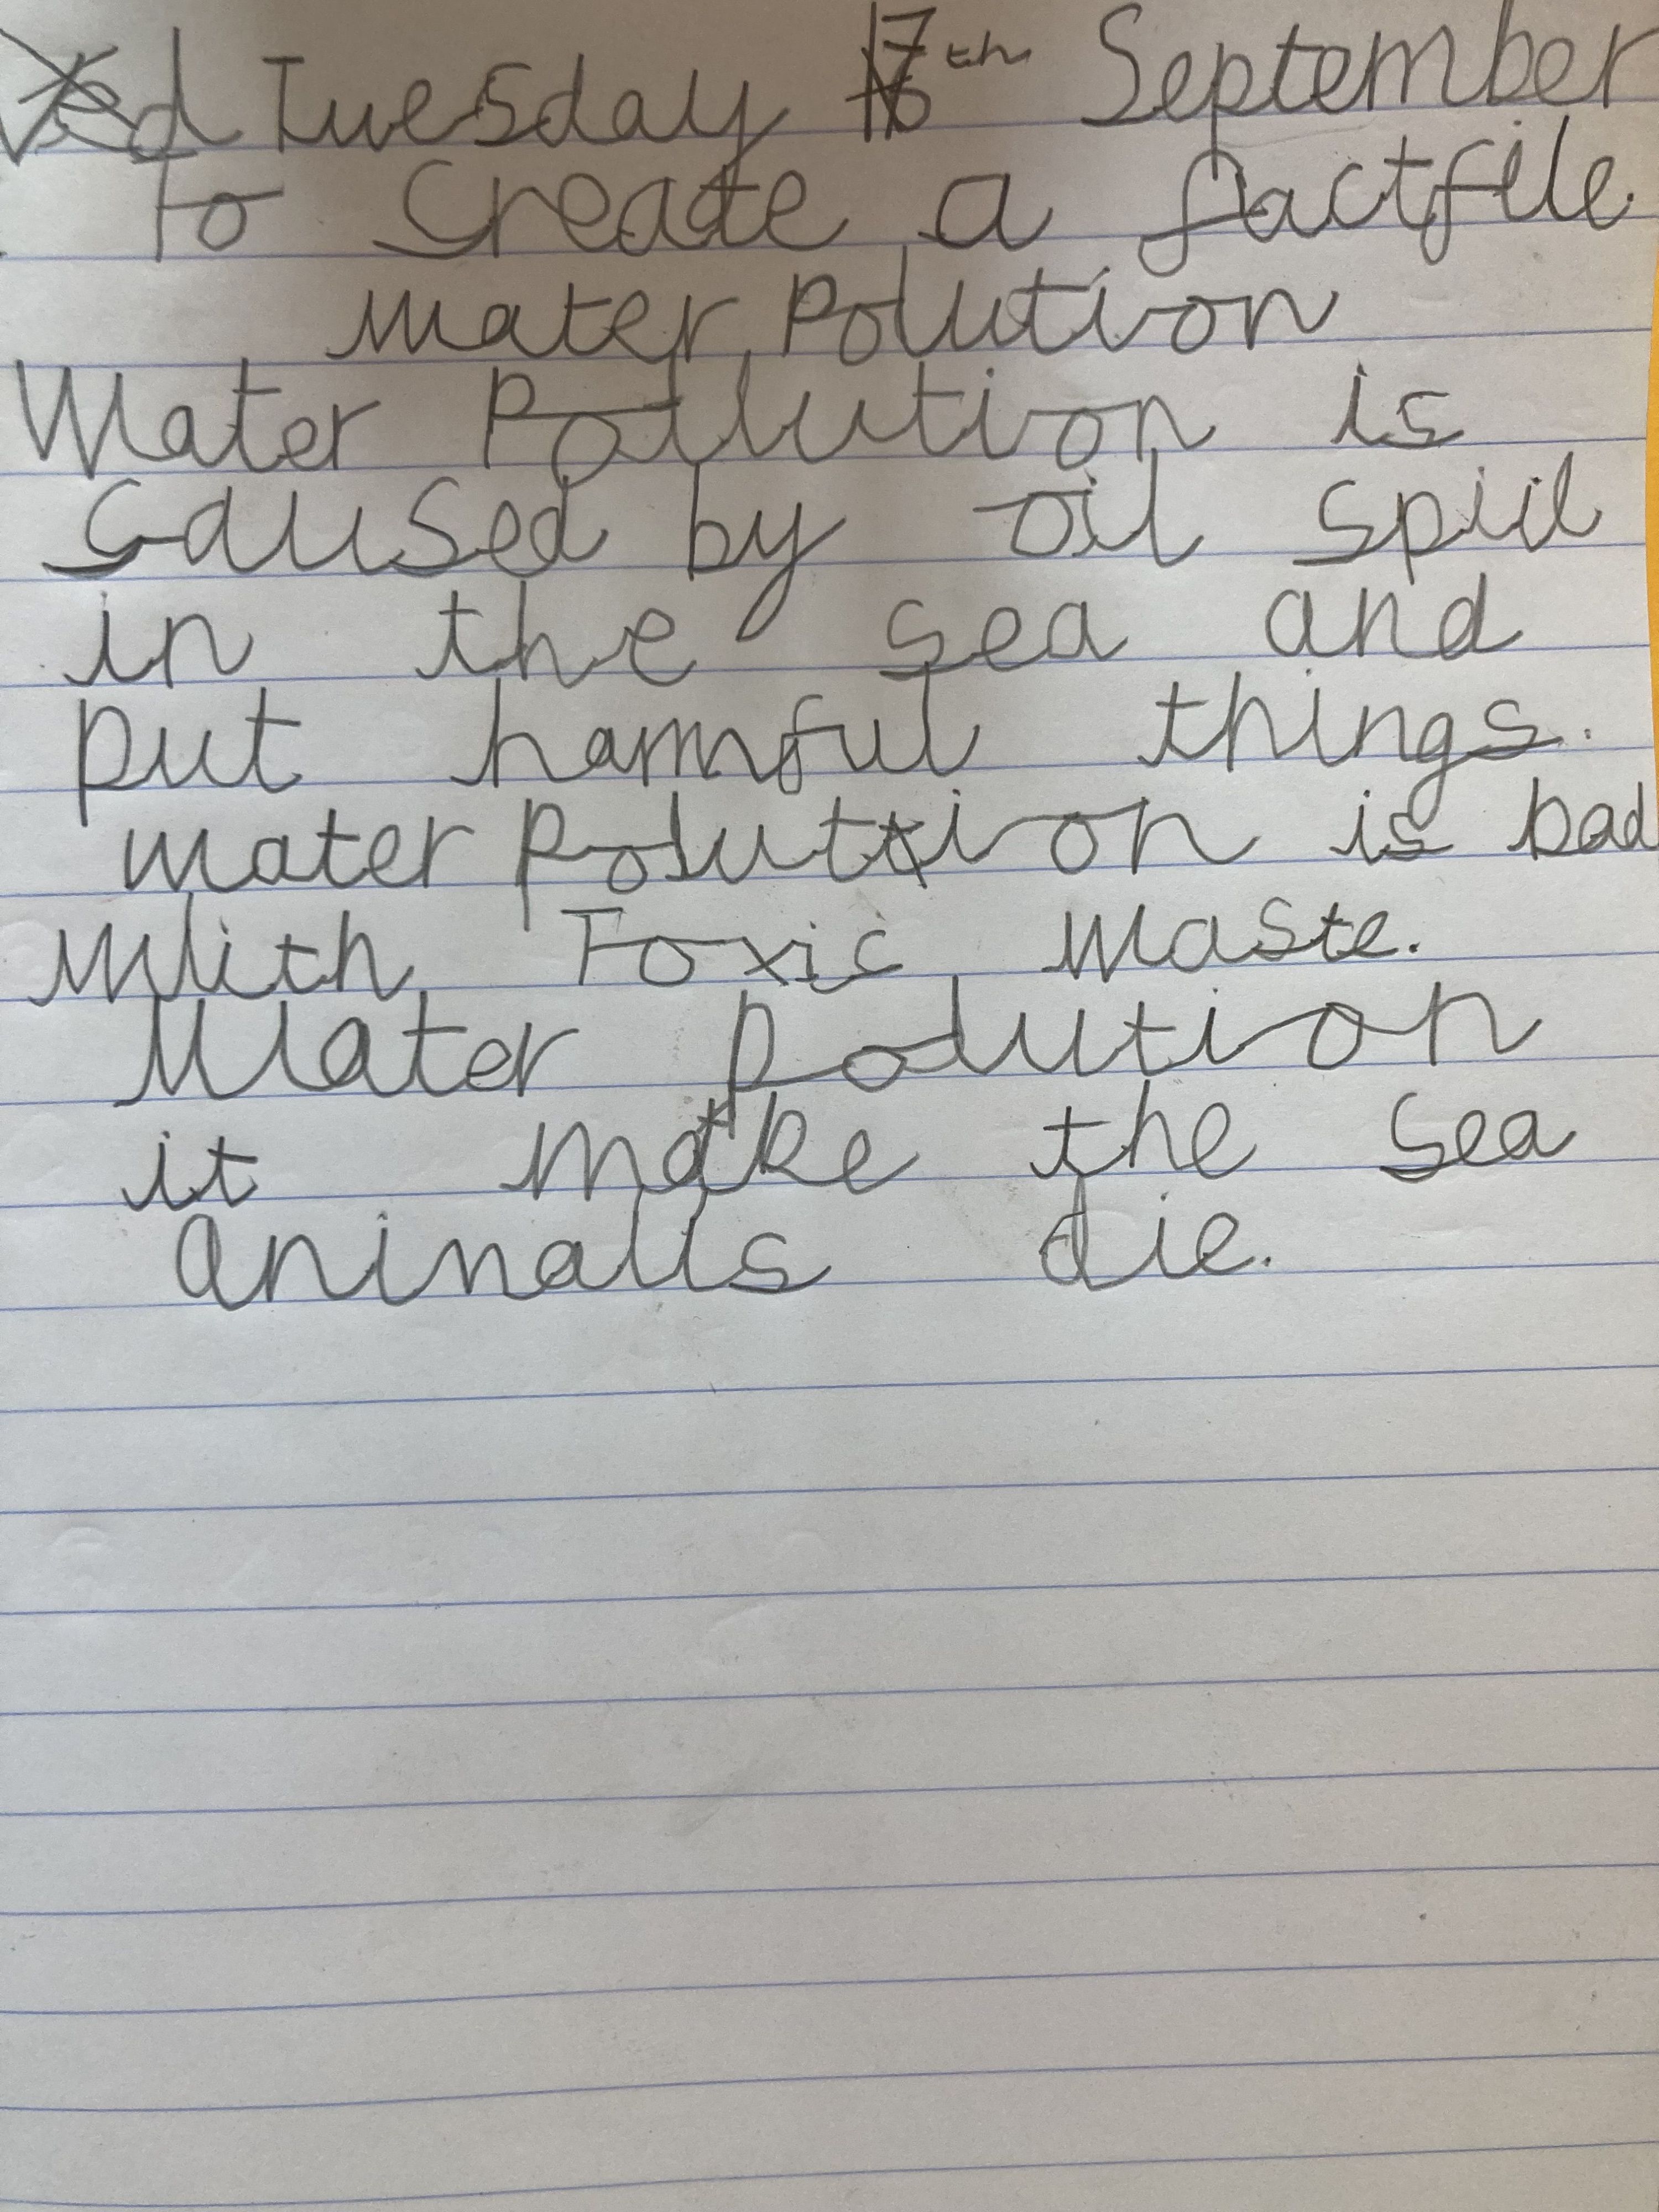 Wed Tuesday 17th September
To Create a factfile
water Polution
Water Pollution is
caused by oil spill
in the sea and
put harmful things.
water polution is bad
with Toxic waste.
Water polution
it make the sea
animalls die.